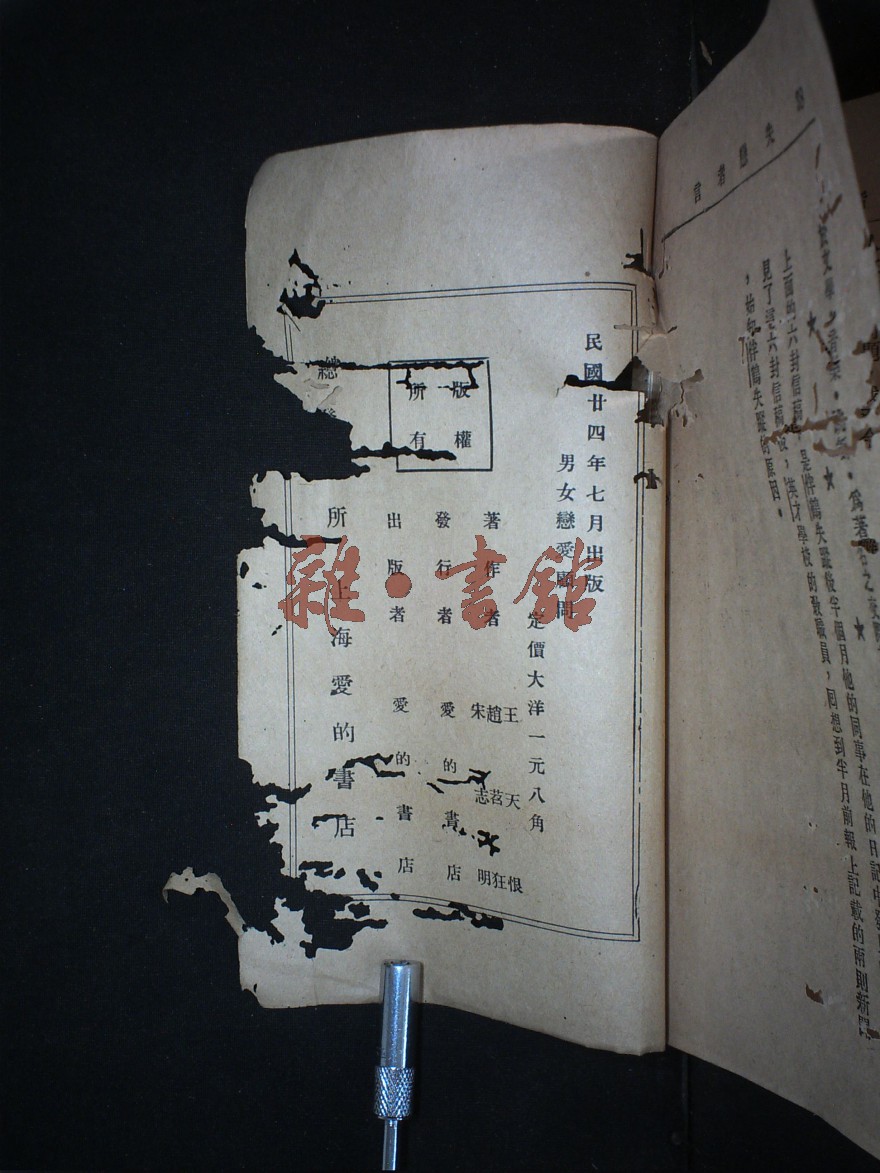 民國廿四年七月出版
男女戀愛顧問
定價大洋一元八角
著作者 王天恨 趙苕狂 宋志明
發行者 愛的書店
出版者 愛的書店
版權
所有
總發 所 上海愛的書店
雜·書館
失戀者言
上面的六封信稿
是伴鶴失蹤後半個月他的同事在他的日記中
見了這六封信稿後,英才學校的教職員,回想到半月前報上記載的兩則新聞
,始知伴鶴失蹤的原因。